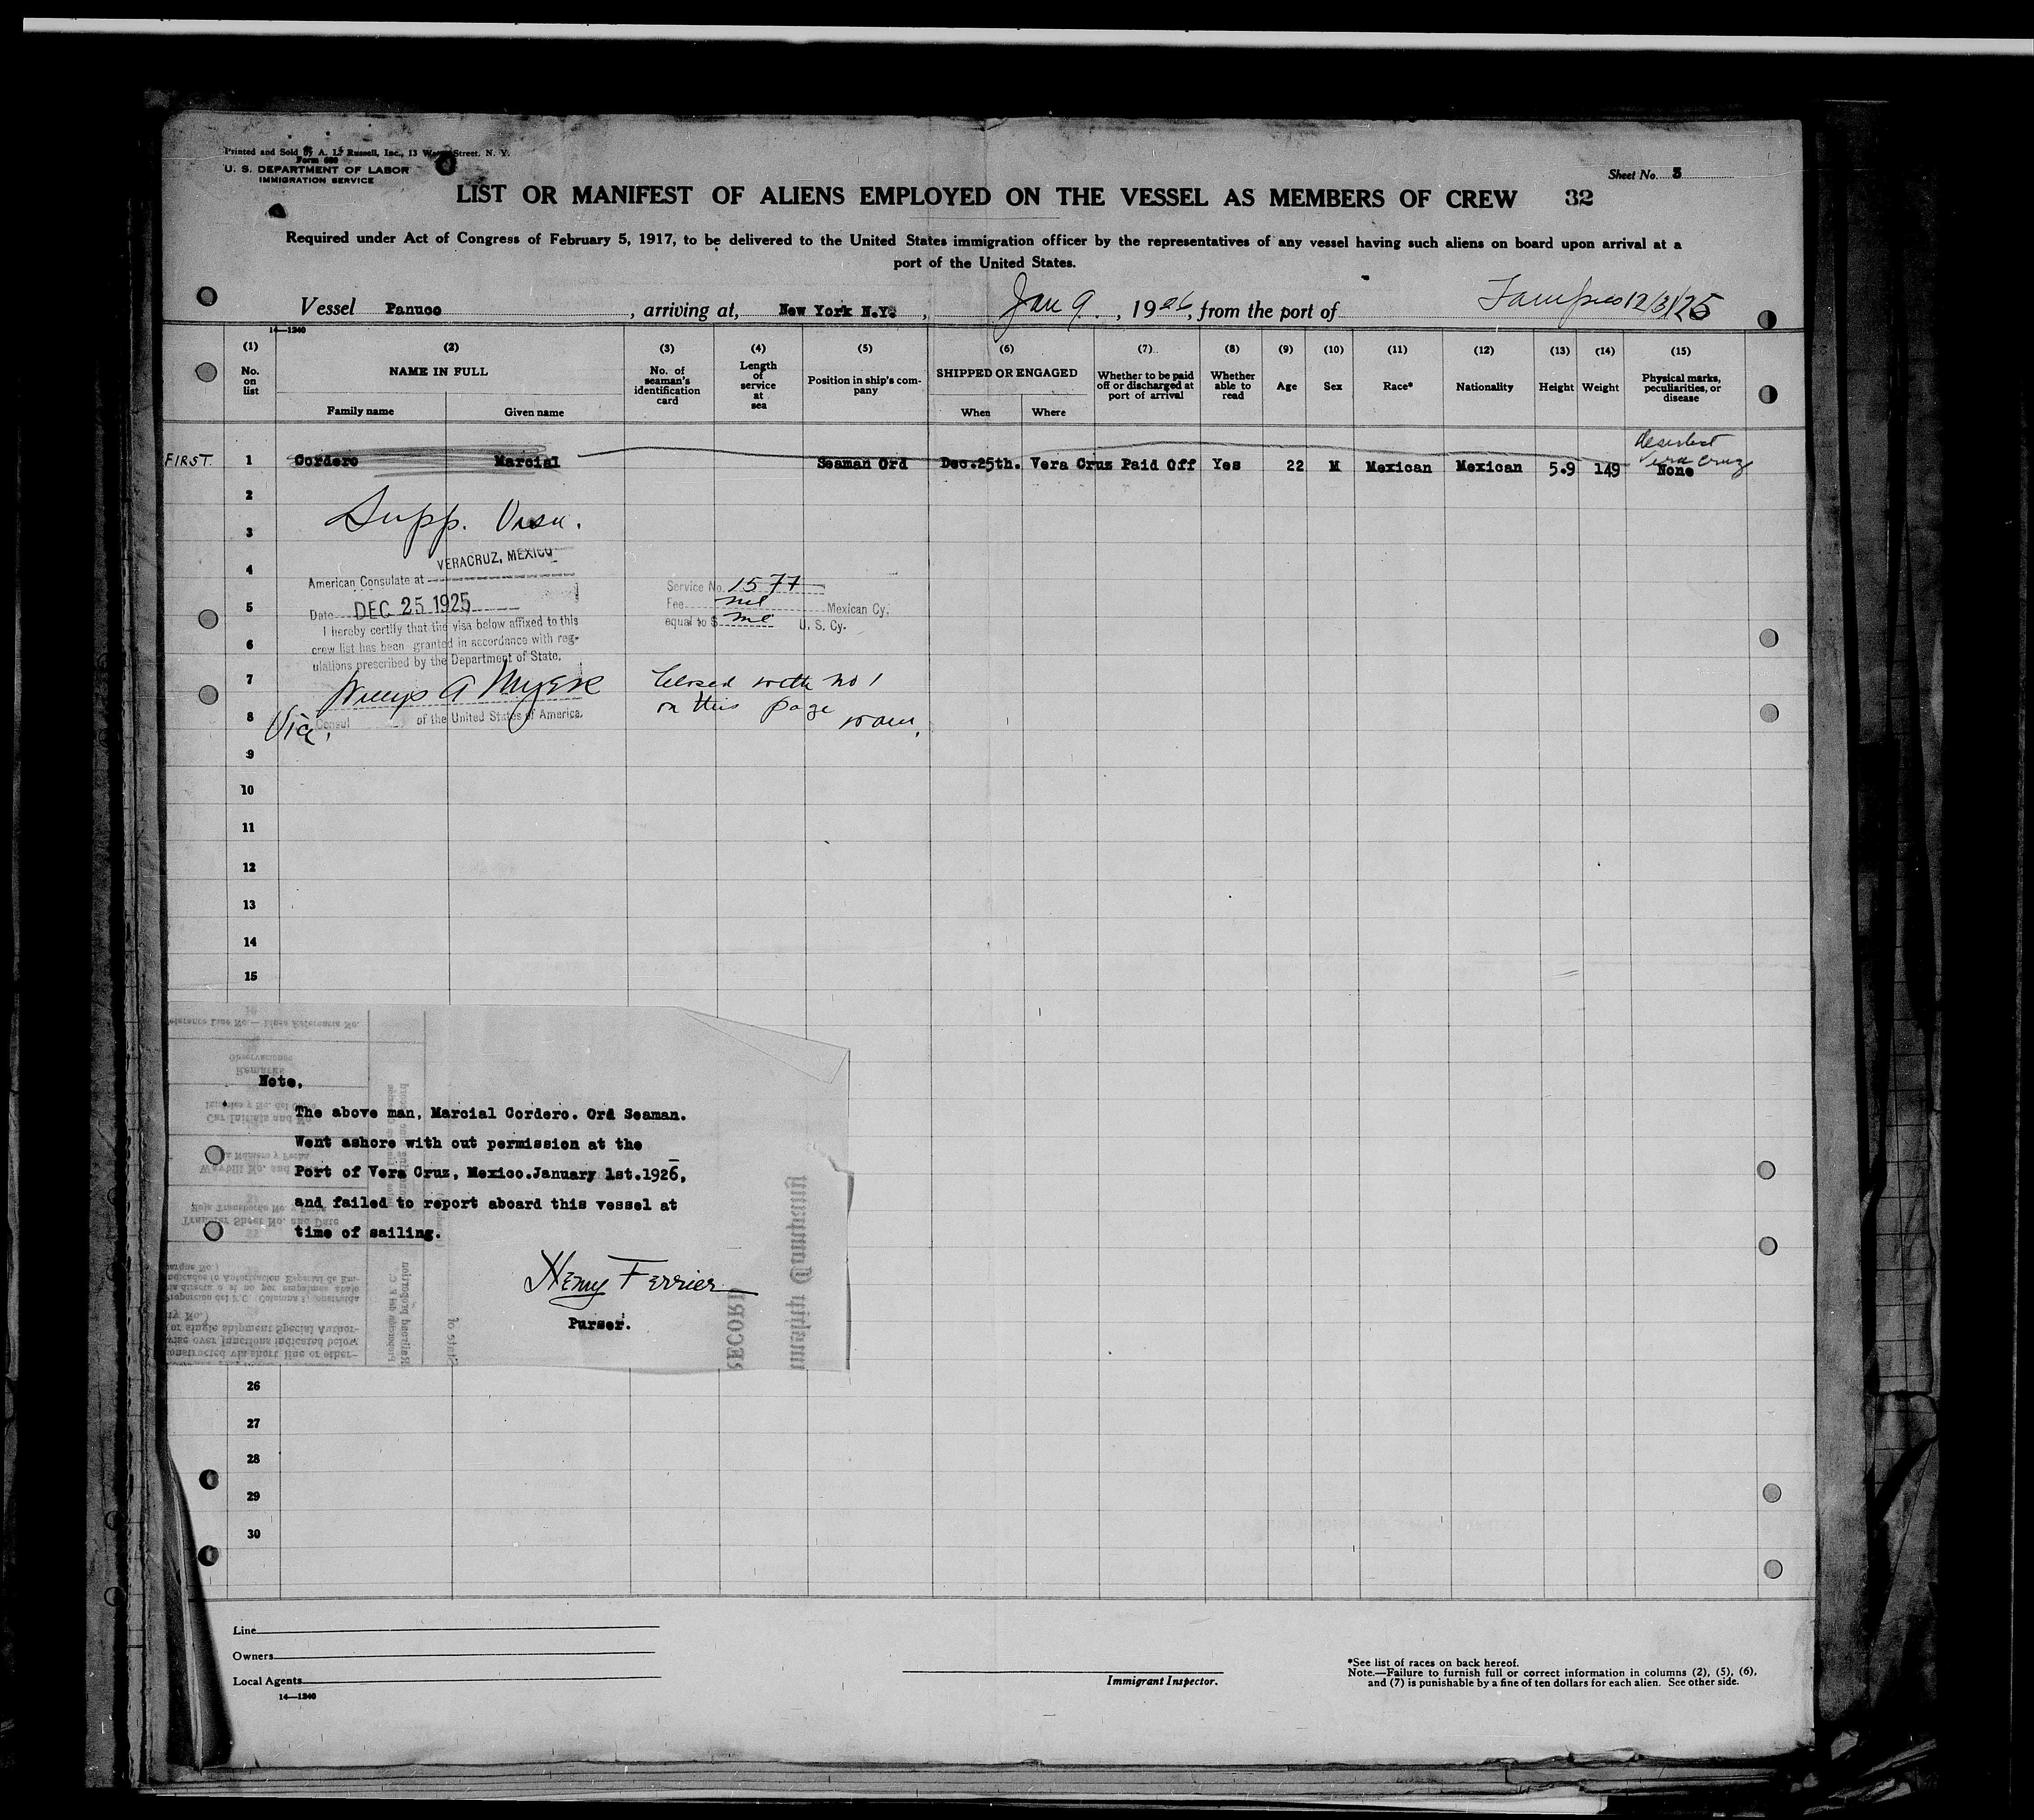 Printed and Sold by A. L. Russell, Inc., 13 Water Street, N. Y.
Form 680
U. S. DEPARTMENT OF LABOR
IMMIGRATION SERVICE
Sheet No. 3
LIST OR MANIFEST OF ALIENS EMPLOYED ON THE VESSEL AS MEMBERS OF CREW 32
Required under Act of Congress of February 5, 1917, to be delivered to the United States immigration officer by the representatives of any vessel having such aliens on board upon arrival at a
port of the United States.
Vessel Panuco, arriving at, New York N.Y., Jan 9, 1926, from the port of Tampico 12/31/25
14—1240
(1) (2) (3) (4) (5) (6) (7) (8) (9) (10) (11) (12) (13) (14) (15)
No. on list
NAME IN FULL
Family name
Given name
No. of seaman's identification card
Length of service at sea
Position in ship's company
SHIPPED OR ENGAGED
When
Where
Whether to be paid off or discharged at port of arrival
Whether able to read
Age
Sex
Race*
Nationality
Height
Weight
Physical marks, peculiarities, or disease
Vera Cruz
FIRST. 1 Cordero Marcial Seaman Ord Dec.25th. Vera Cruz Paid Off Yes 22 M Mexican Mexican 5.9 149 None
2
Supp. Visa.
3
VERACRUZ, MEXICO
4
American Consulate at
Service No. 1577
5
Date DEC 25 1925
Fee nil Mexican Cy.
equal to $ nil U. S. Cy.
I hereby certify that the visa below affixed to this
6
crew list has been granted in accordance with reg-
ulations prescribed by the Department of State.
7
Willys A Myers
Closed with no 1
on this page
8
Vice Consul of the United States of America.
9
10
11
12
13
14
15
Note,
The above man, Marcial Cordero. Ord Seaman.
Went ashore with out permission at the
Port of Vera Cruz, Mexico.January 1st.1926,
and failed to report aboard this vessel at
time of sailing.
Henry Ferrier
Purser.
26
27
28
29
30
Line
Owners
Local Agents
14—1240
Immigrant Inspector.
*See list of races on back hereof.
Note.—Failure to furnish full or correct information in columns (2), (5), (6),
and (7) is punishable by a fine of ten dollars for each alien. See other side.